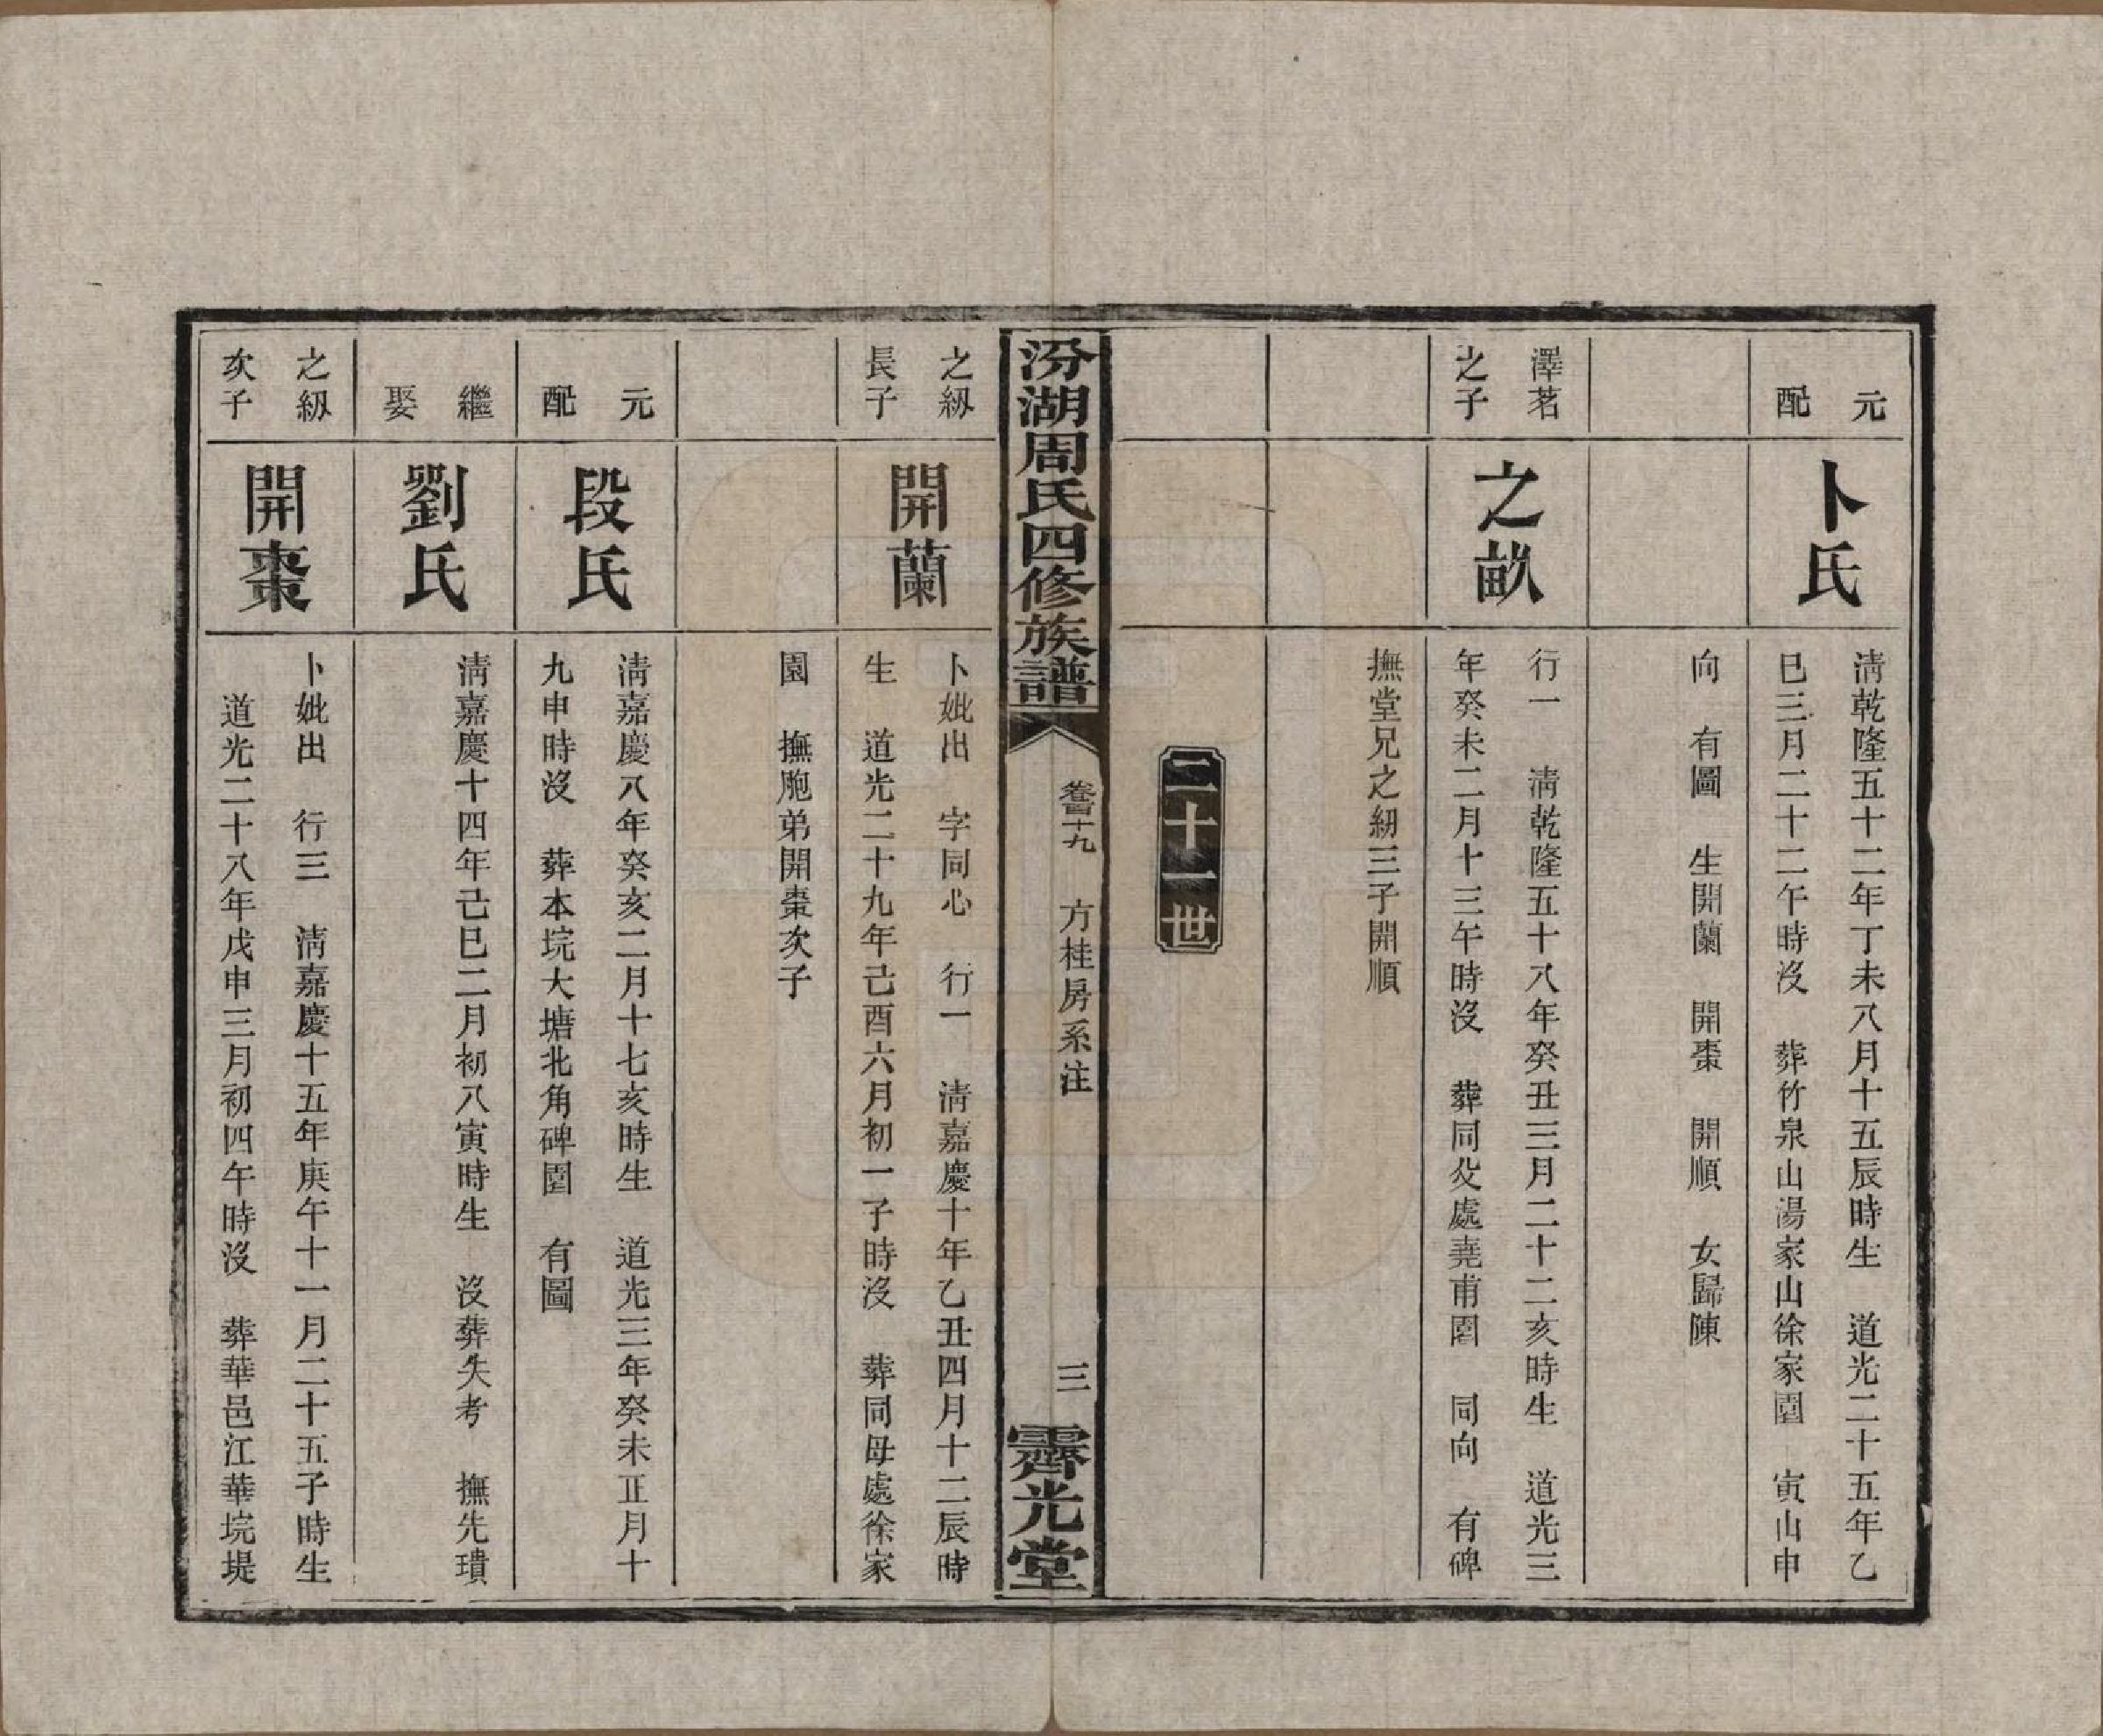 元
配
卜氏
淸乾隆五十二年丁未八月十五辰時生　道光二十五年乙
巳三月二十二午時沒　葬竹泉山湯家山徐家園　寅山申
向　有圖　生開蘭　開棗　開順　女歸陳
澤茗
之子
之畝
行一　淸乾隆五十八年癸丑三月二十二亥時生　道光三
年癸未二月十三午時沒　葬同父處堯甫園　同向　有碑
撫堂兄之紉三子開順
二十一世
汾湖周氏四修族譜
卷百十九　方桂房系注
三
霽光堂
之紉
長子
開蘭
卜妣出　字同心　行一　淸嘉慶十年乙丑四月十二辰時
生　道光二十九年己酉六月初一子時沒　葬同母處徐家
園　撫胞弟開棗次子
元
配
段氏
淸嘉慶八年癸亥二月十七亥時生　道光三年癸未正月十
九申時沒　葬本垸大塘北角碑園　有圖
繼
娶
劉氏
淸嘉慶十四年己巳二月初八寅時生　沒葬失考　撫先璝
之紉
次子
開棗
卜妣出　行三　淸嘉慶十五年庚午十一月二十五子時生
道光二十八年戊申三月初四午時沒　葬華邑江華垸堤